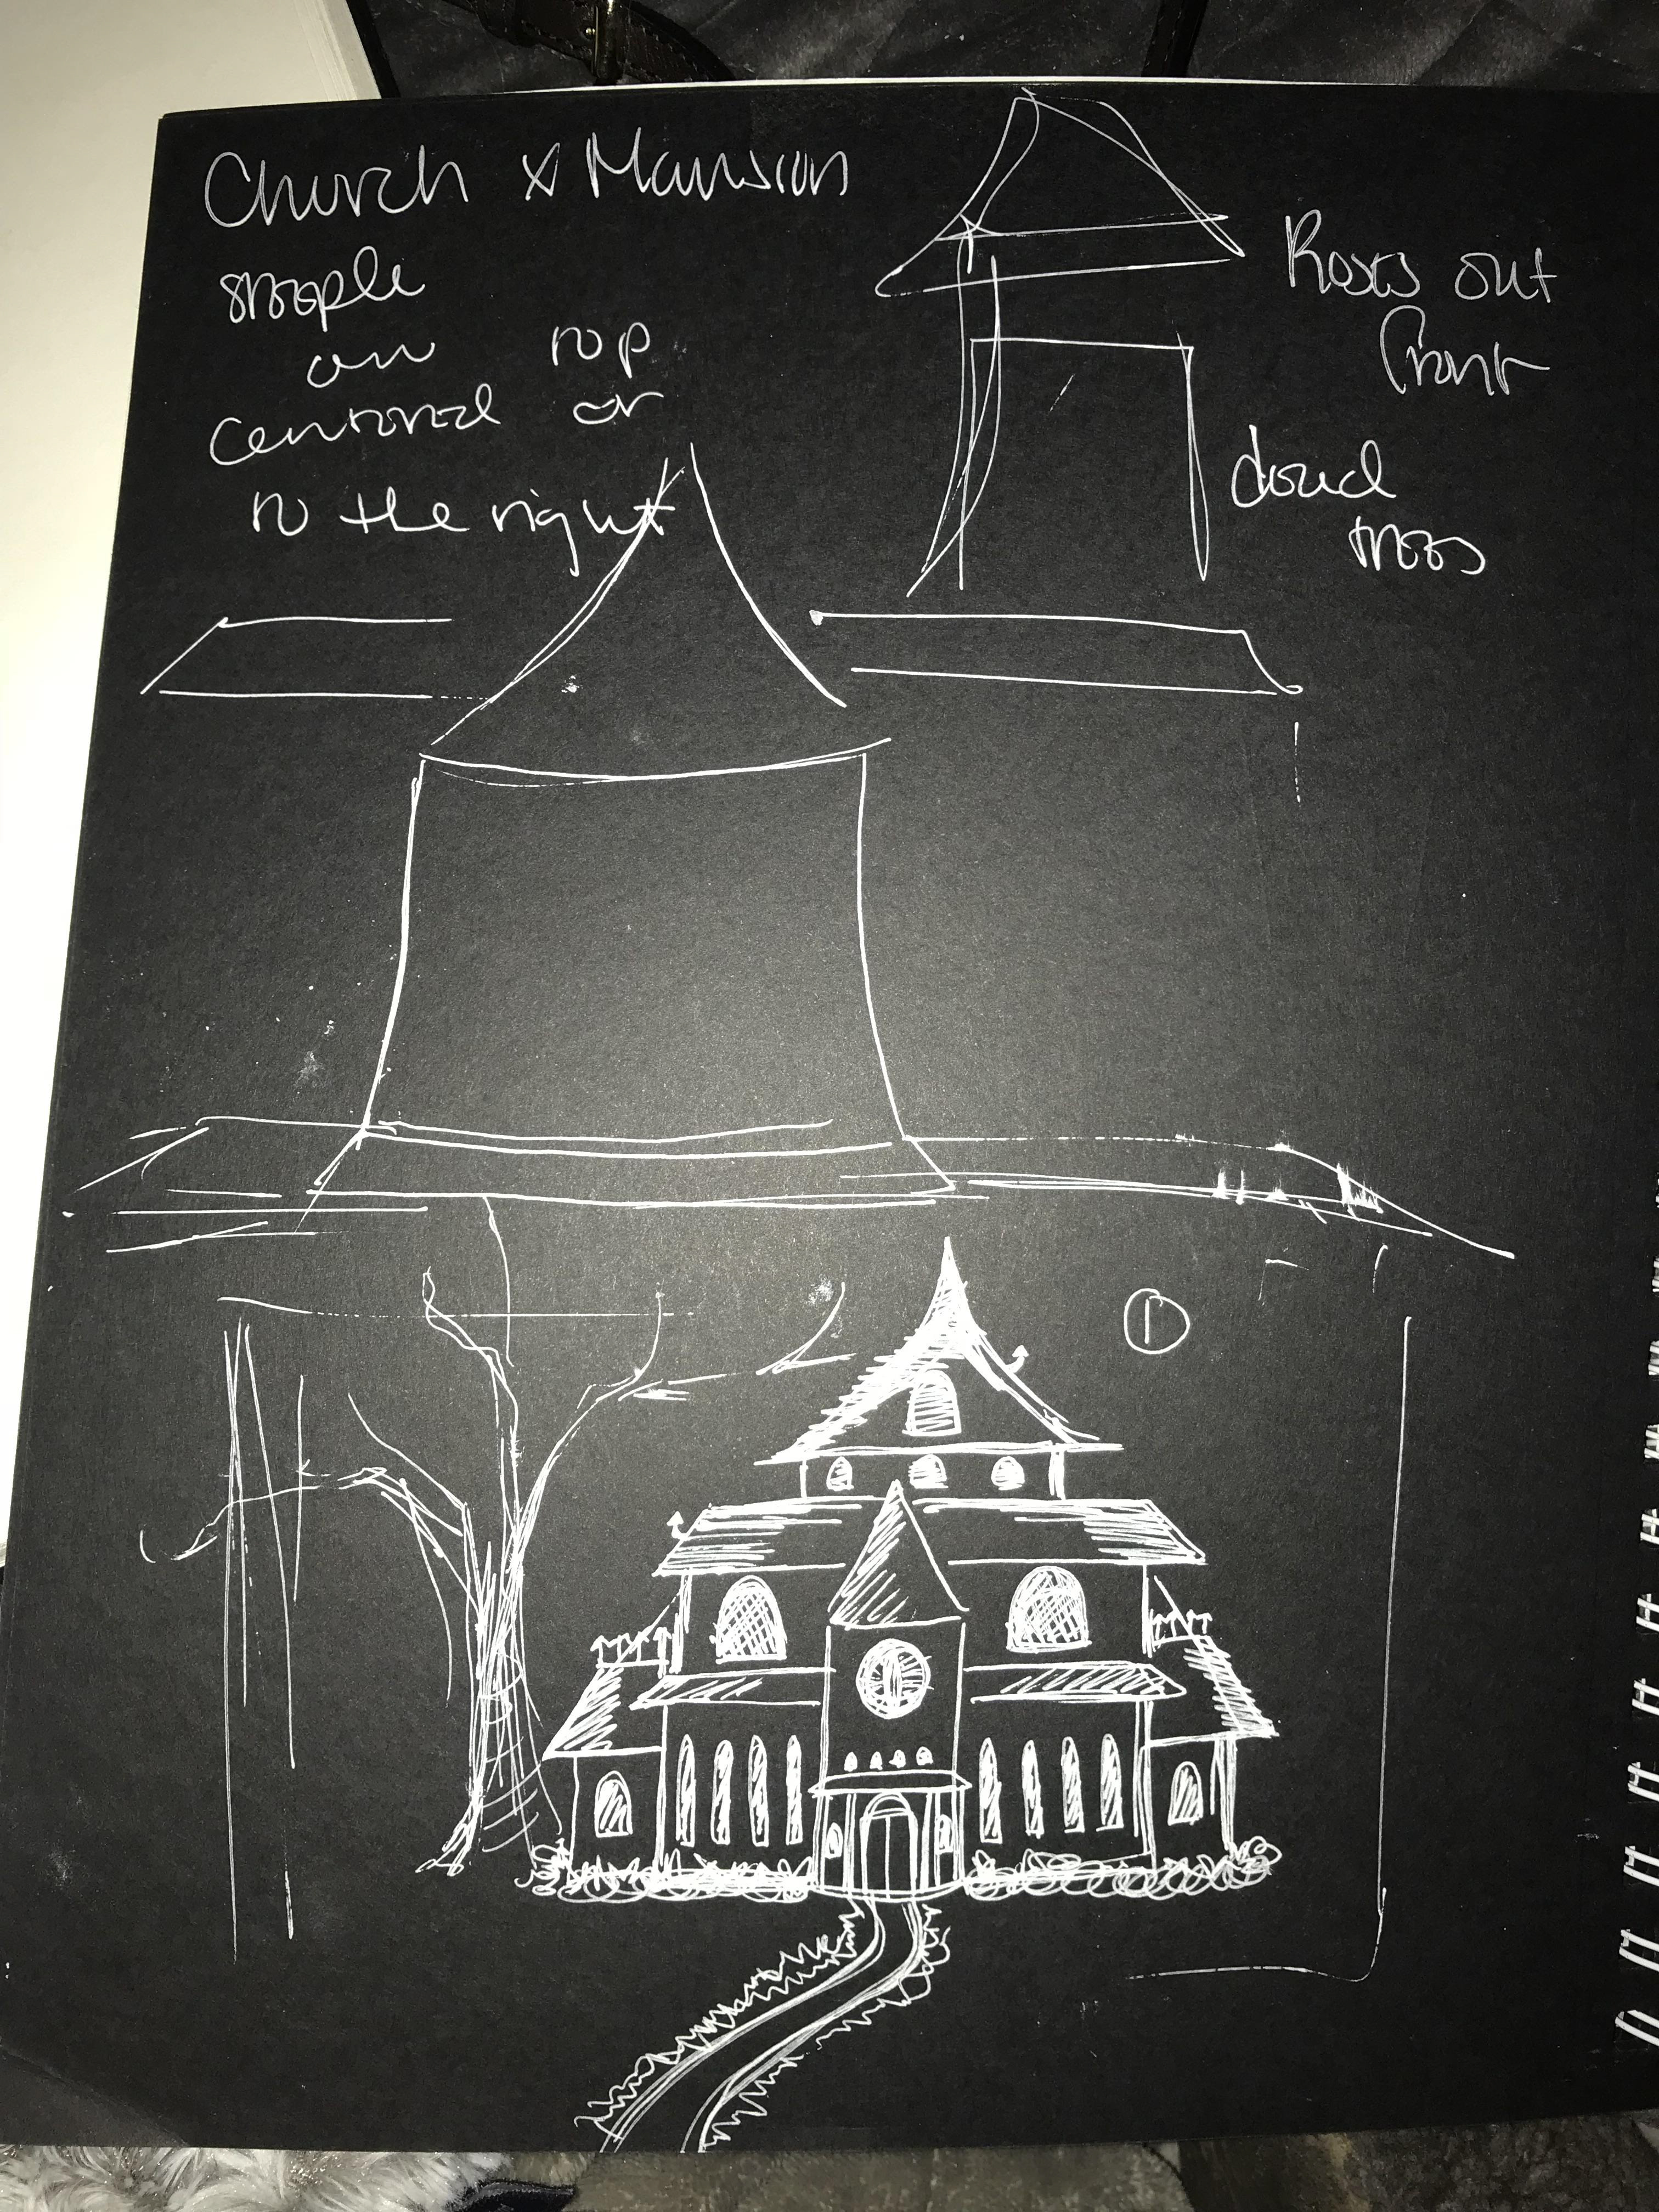 Church x Mansion
steeple
on top
centered or
to the right
Roses out
front
dead
trees
1